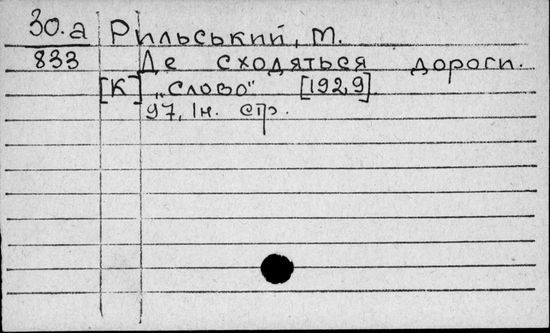 30.а Рильський, М.
833 Де сходяться дороги.
[К] „Слово" [1929]
97, Ін. стр.